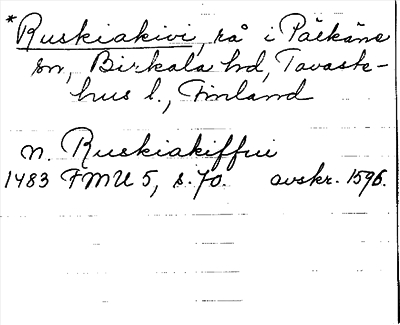 *Ruskiakivi, rå i Pälkäne
sn, Birkala hd, Tavaste-
hus l., Finland
n. Ruskiakiffui
1483 FMU 5, s. 70. avskr. 1596.